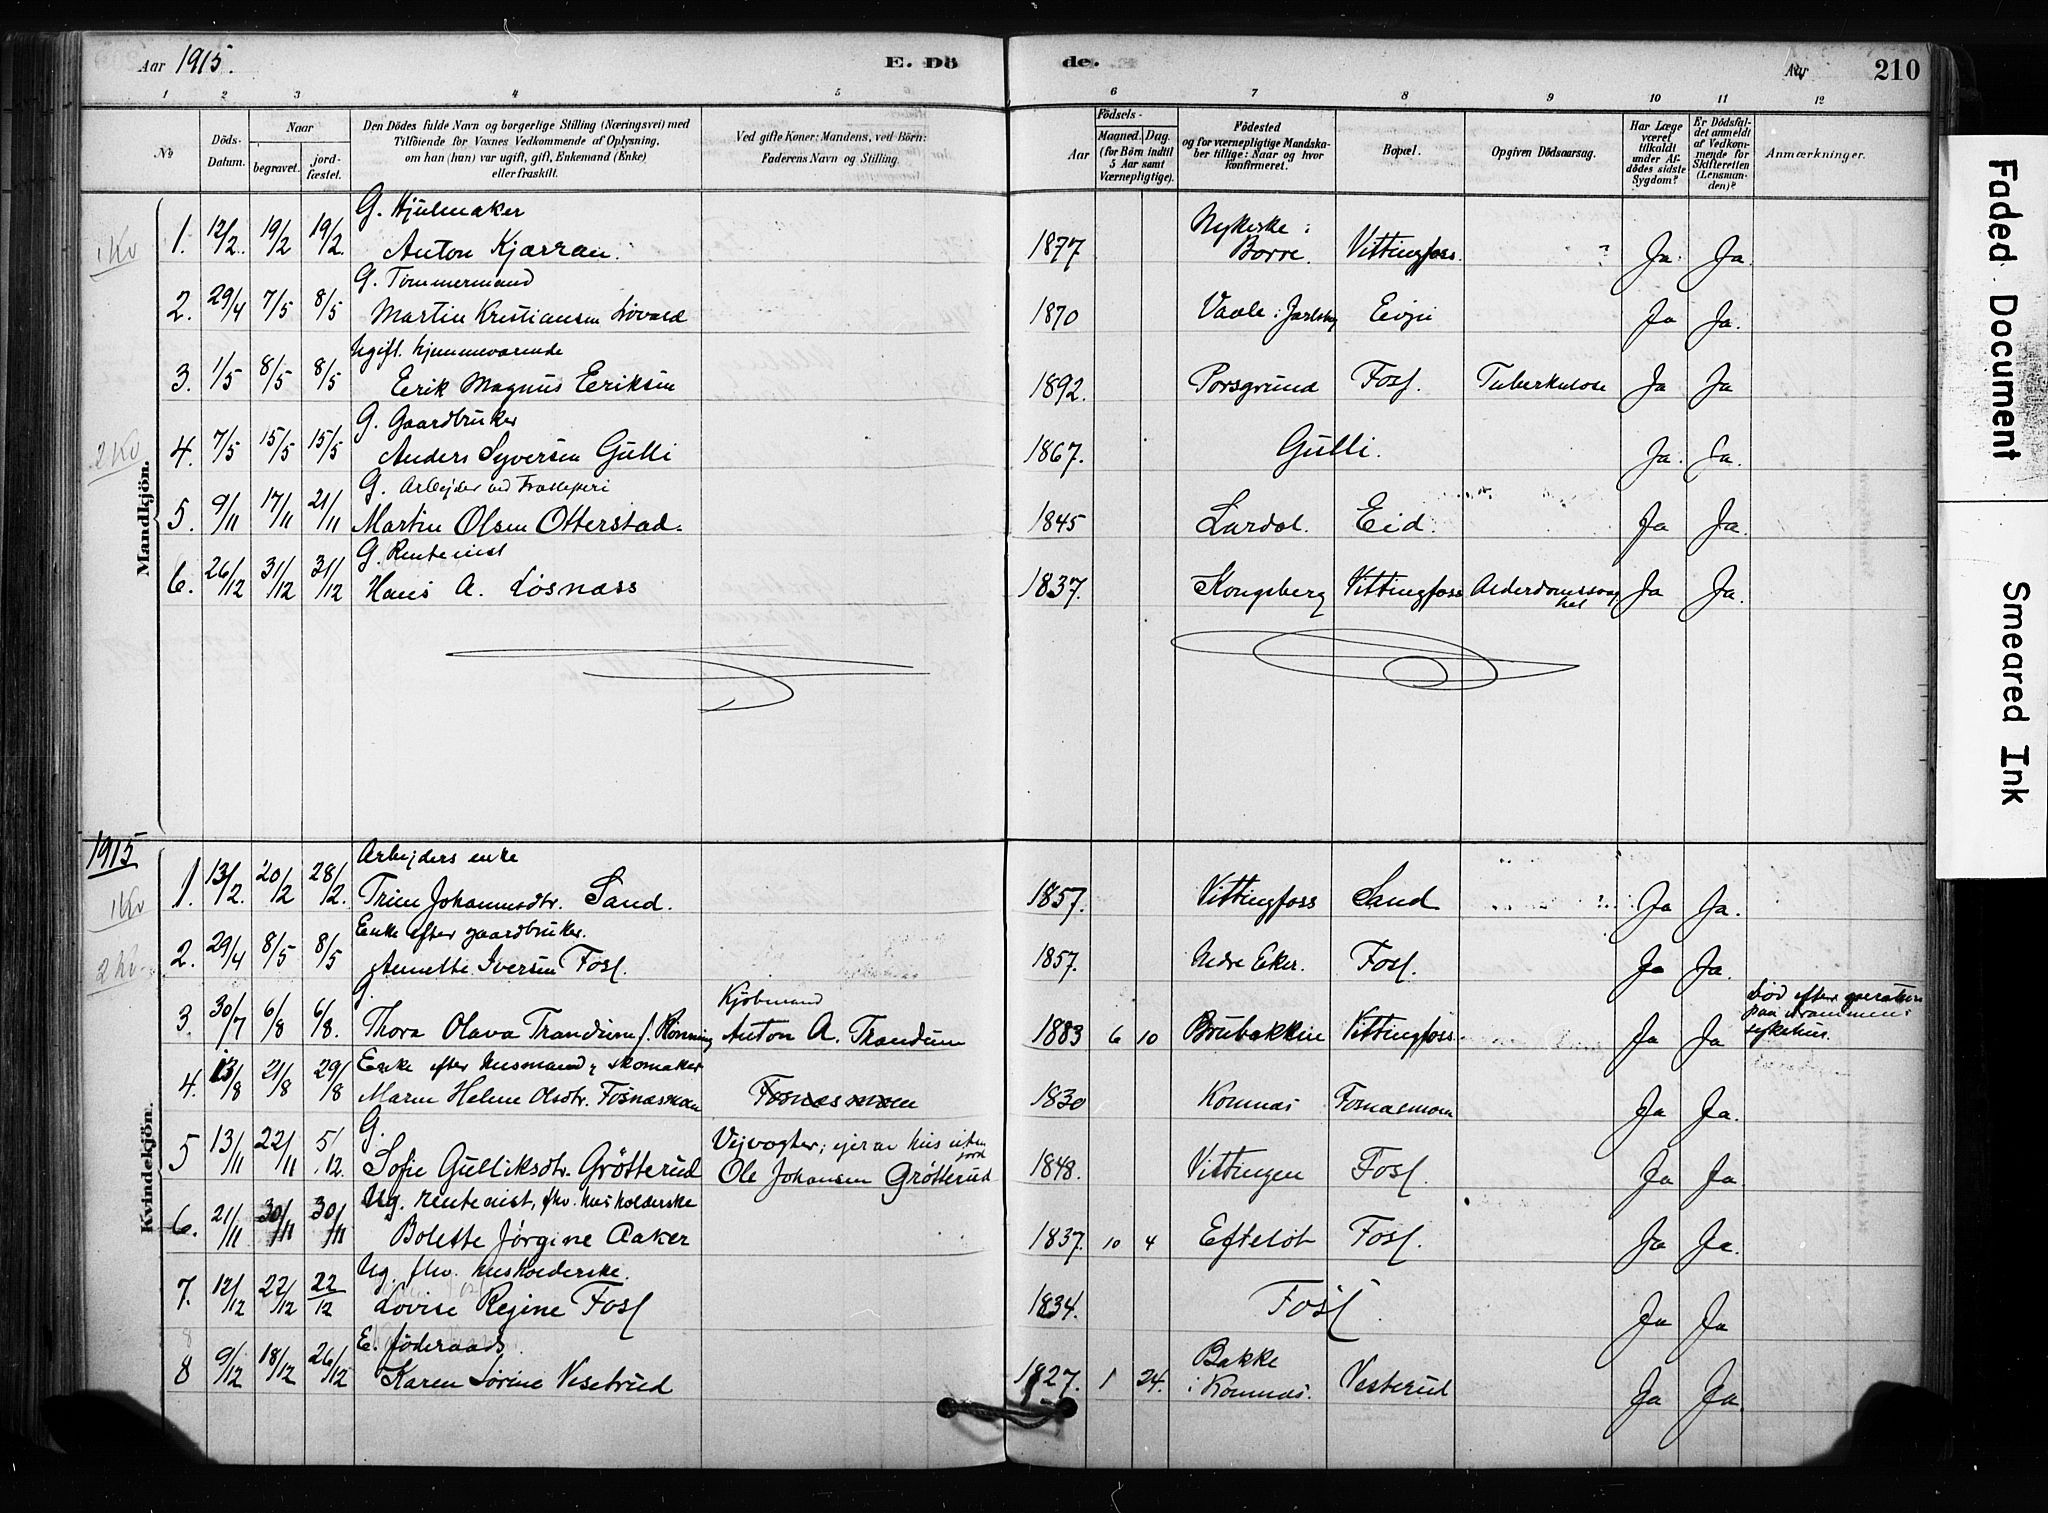 Aar 1915. E. Dö
1 2 3 4 5
No
Döds-
Datum.
Naar
begravet.
jord-
fæstet.
Den Dödes fulde Navn og borgerlige Stilling (Næringsvei) med
Tilföiende for Voxnes Vedkommende af Oplysning,
om han (hun) var ugift, gift, Enkemand (Enke)
eller fraskilt.
Ved gifte Koner: Mandens, ved Börn:
Faderens Navn og Stilling.
de. Aar 210
6 7 8 9 10 11 12
Födsels-
Aar
Maaned. Dag.
(for Börn indtil
5 Aar samt
Værnepligtige).
Födested
og for værnepligtige Mandska-
ber tillige: Naar og hvor
konfirmeret.
Bopæl.
Opgiven Dödsaarsag.
Har Læge
været
tilkaldt
under Af-
dödes sidste
Sygdom?
Er Dödsfal-
det anmeldt
af Vedkom-
mende for
Skifteretten
(Lensman-
den)?
Anmærkninger.
Faded Document
Smeared Ink
Mandkjön.
1 Kv
G. Hjulmaker
1. 12/2. 19/2 19/2. Anton Kjærran. 1877 Nykirke i Borre. Vittingfoss. ? Ja. Ja.
G. Tømmermand
2. 29/4 7/5 8/5 Martin Kristiansen 1870 Vaale i Jarlsbg Ja Ja.
Ugift. hjemmeværende
3. 1/5 8/5 8/5 Eerik Magnus Eeriksen 1892. Porsgrund Foss. Tuberkulose Ja Ja
2 Kv
G. Gaardbruker
4. 7/5 15/5 15/5 Anders Syversen Gulli 1867. Gulli. Ja. Ja.
G. Arbejder ved Træsliperi
5. 9/11 17/11 21/11 Martin Olsen Otterstad. 1845 Lardal. Eid. Ja Ja.
G. Renteinst
6. 26/12 31/12 31/12 Hans A. Løsnæss 1837. Kongsberg Vittingfoss Alderdomssvag
het Ja Ja.
1915
Kvindekjön.
1 Kv
Arbejders enke
1. 13/2. 20/2 28/2. Trine Johannesdtr. Sand. 1857. Vittingfoss Sand ?. Ja Ja.
2 Kv.
Enke efter gaardbruker.
2. 29/4 8/5 8/5 Annette Iversen Foss. 1857. Nedre Eker. Foss. Ja Ja.
Kjøbmand
3. 30/7 6/8 6/8. Thora Olava Trandum f. Rønning Anton A. Trandum 1883 6 10 Brubakken Vittingfoss Ja Ja Død efter operation
paa Drammens
sykehus.
Enke efter husmand & skomaker
4. 13/8 21/8 29/8 Maren Helene Olsdtr. Fosnæsmoen Fosnæsmoen 1830 Komnæs Fosnæsmoen Ja Ja.
G. Vejvogter; ejer av hus uten
jord
5 13/11 22/11 5/12. Sofie Gulliksdtr. Grøtterud Ole Johansen Grøtterud 1848. Vittingen Foss. Ja Ja
Ug. renteinst, fhv. husholderske
6. 21/11 30/11 30/11 Bolette Jørgine Aaker 1837. 10 4 Efteløt Foss. Ja Ja.
Ug. fhv. husholderske.
7. 12/12 22/12 22/12 Lovise Regine Foss 1834. Foss. Ja Ja
8
E. föderaads.
8 9/12 18/12 26/12 Karen Sørine Vesterud 1927. 1 24. Bakke
i Komnæs. Vesterud Ja Ja.